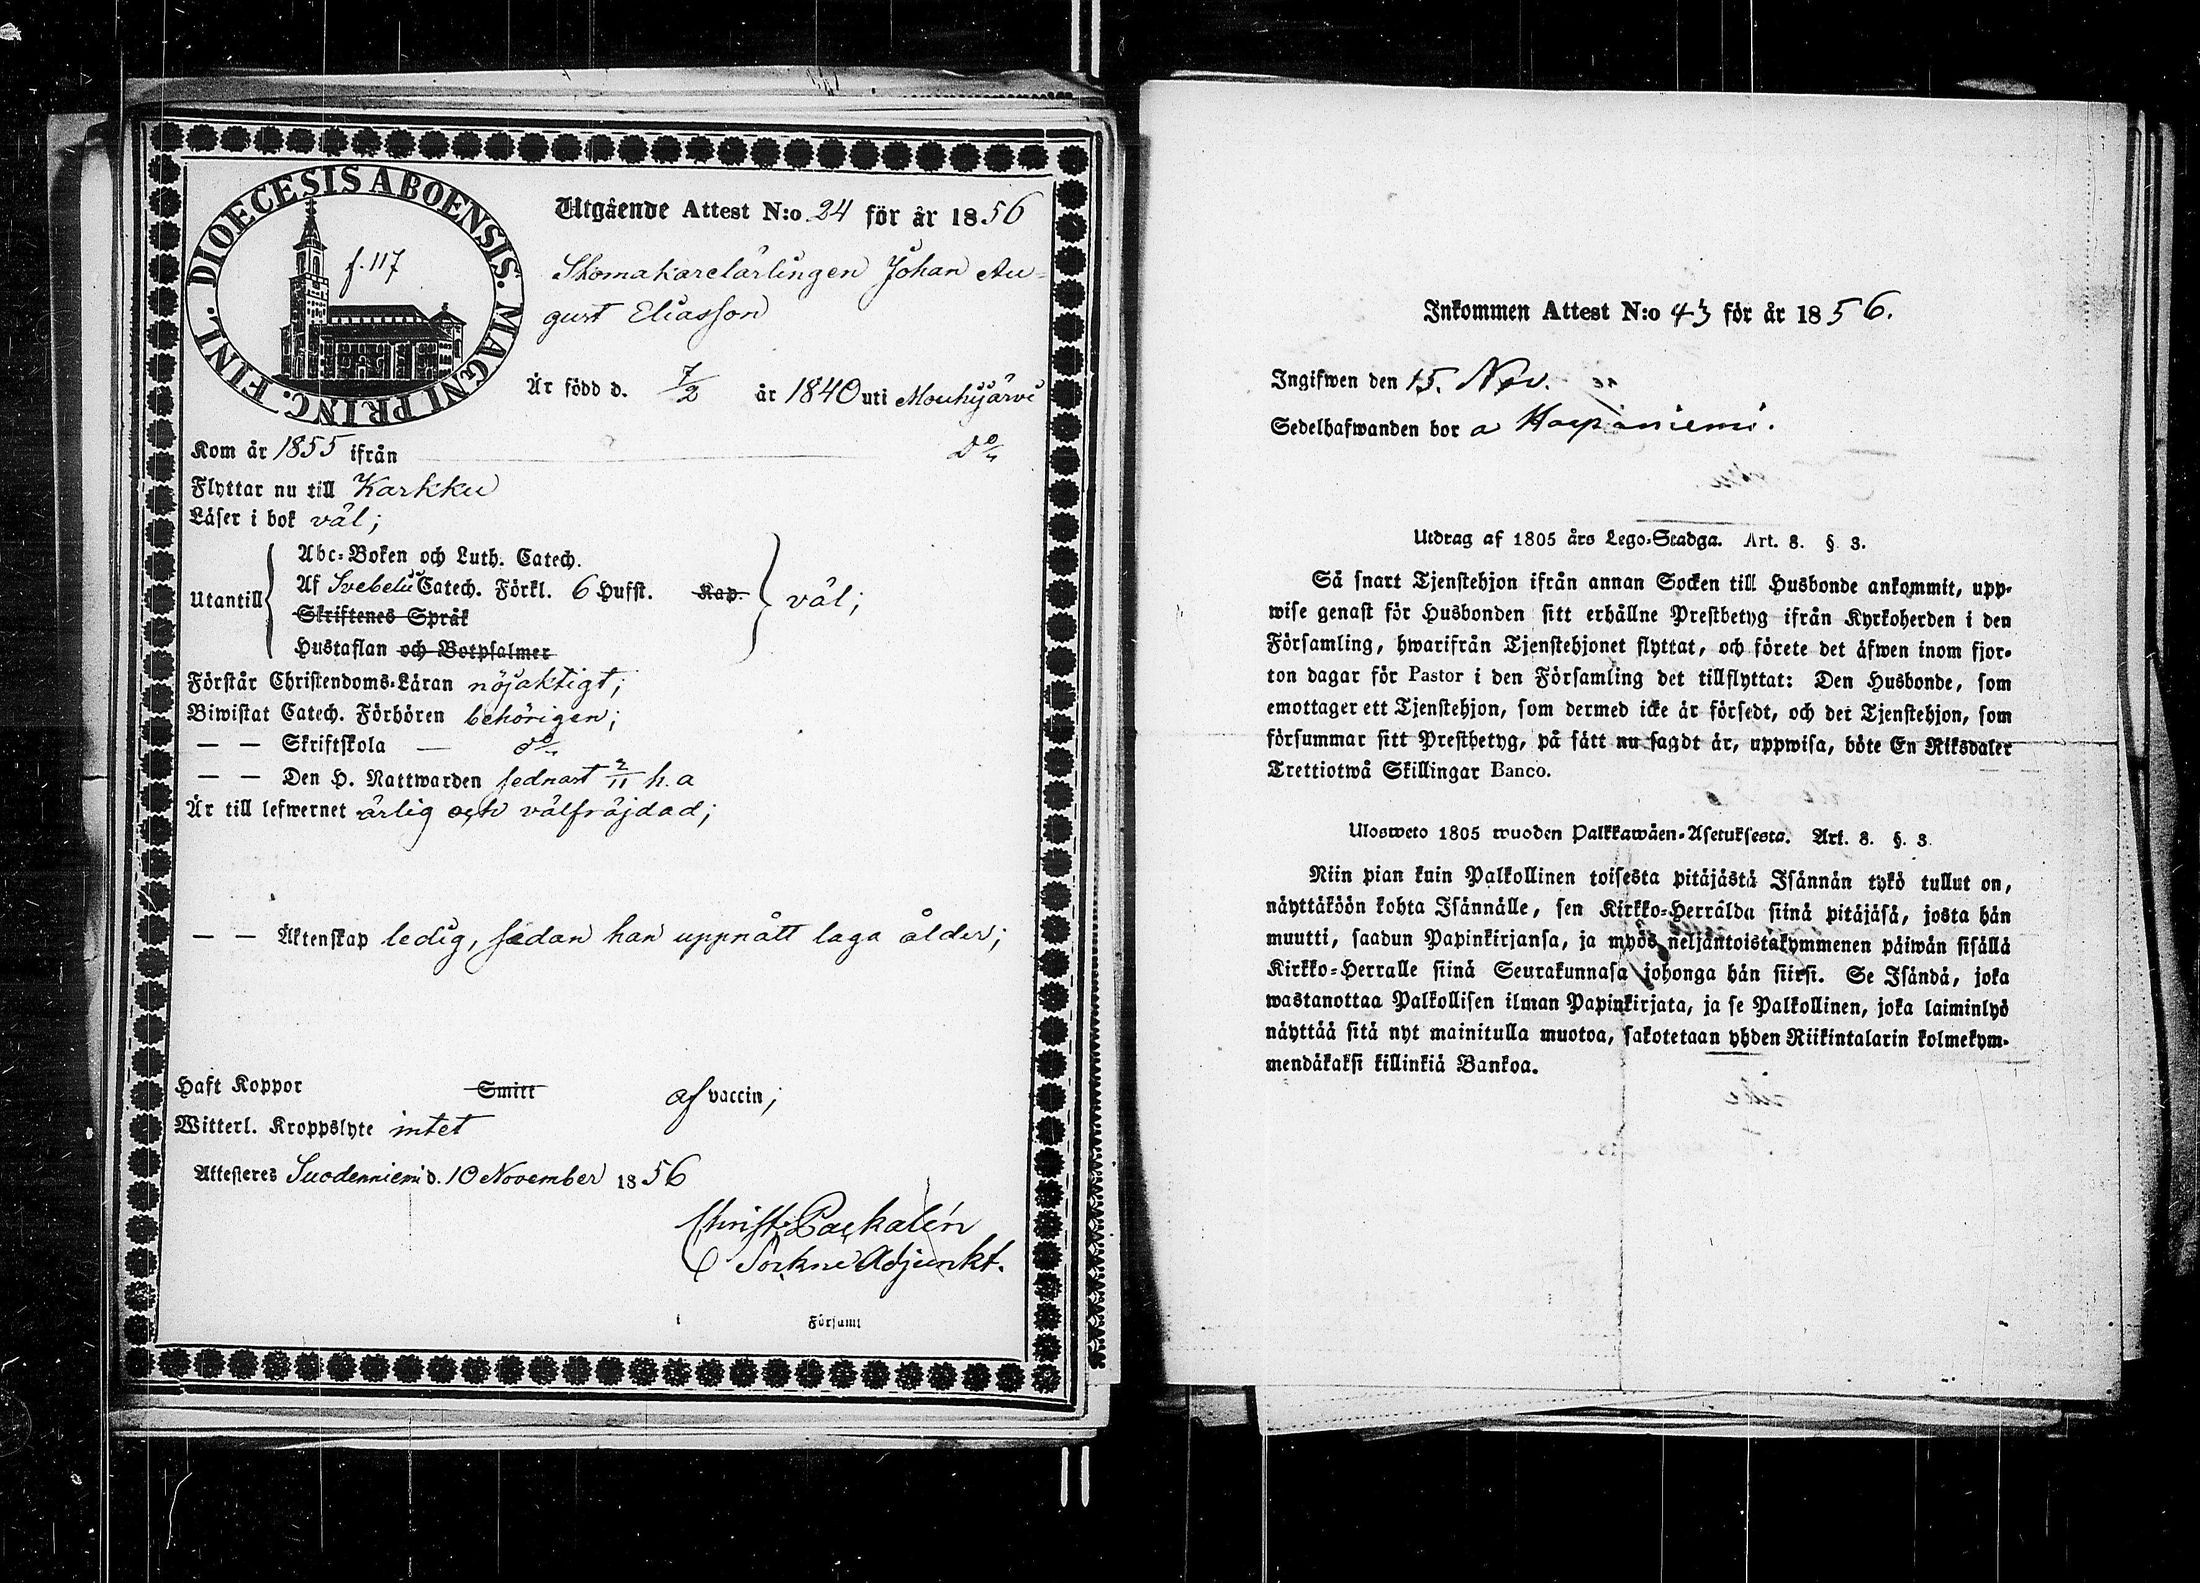 DIOECESIS ABOENSIS. MAGNI PRINC. FINL.
f. 117
Utgående Attest N:o 24 för år 1856
Skomakarelärlingen Johan Au-
gust Eliasson
Är född d. 7/2 år 1840 uti Mouhijärvi
Kom år 1855 ifrån d:o
Flyttar nu till Karkku
Läser i bok väl;
Utantill
Abc-Boken och Luth. Catech.
Af Svebelii Catech. Förkl. 6 Hufst. Kap.
Skriftenes Språk
Hustaflan och Botpsalmer
väl;
Förstår Christendoms-Läran nöjaktigt;
Biwistat Catech. Förhören behörigen;
— — Skriftskola — d:o
— — Den H. Nattwarden sednast 2/11 h. a
Är till lefwernet ärlig och välfräjdad;
— — Äktenskap ledig, sedan han uppnått laga ålder;
Haft Koppor Smitt af vaccin;
Witterl. Kroppslyte intet
Attesteres Suodenniemi d. 10 November 1856
Christ. Packalén
Sockne Adjunkt.
i Församl
Inkommen Attest N:o 43 för år 1856.
Ingifwen den 15. Nov.
Sedelhafwanden bor a Haapaniemi.
Utdrag af 1805 års Lego-Stadga. Art. 8. § 3.
Så snart Tjenstehjon ifrån annan Socken till Husbonde ankommit, upp-
wise genast för Husbonden sitt erhållne Prestbetyg ifrån Kyrkoherden i den
Församling, hwarifrån Tjenstehjonet flyttat, och förete det äfwen inom fjor-
ton dagar för Pastor i den Församling det tillflyttat: Den Husbonde, som
emottager ett Tjenstehjon, som dermed icke är försedt, och det Tjenstehjon, som
försummar sitt Prestbetyg, på sätt nu sagdt är, uppwisa, böte En Riksdaler
Trettiotwå Skillingar Banco.
Ulosweto 1805 wuoden Palkkawäen-Asetuksesta. Art. 8. §. 3.
Niin pian kuin Palkollinen toisesta pitäjästä Isännän tykö tullut on,
näyttäköön kohta Isännälle, sen Kirkko-Herralda siinä pitäjäsä, josta hän
muutti, saadun Papinkirjansa, ja myös neljäntoistakymmenen päiwän sisällä
Kirkko-Herralle siinä Seurakunnasa johonga hän siirsi. Se Isändä, joka
wastanottaa Palkollisen ilman Papinkirjata, ja se Palkollinen, joka laiminlyö
näyttää sitä nyt mainitulla muotoa, sakotetaan yhden Riikintalarin kolmekym-
mendäkaksi killinkiä Bankoa.